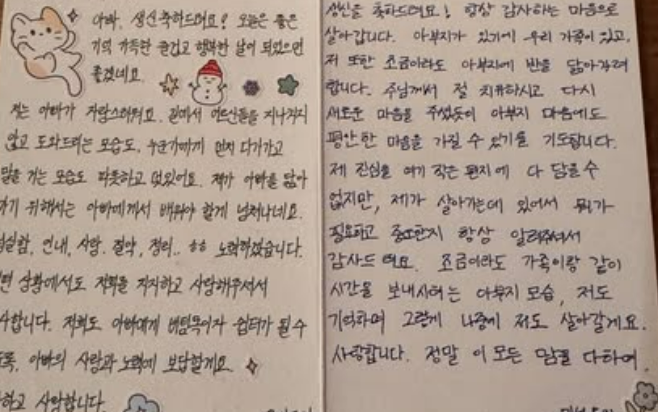 아빠, 생신축하드려요! 오늘은 좋은
기억 가득한 즐겁고 행복한 날이 되었으면
좋겠네요.
저는 아빠가 자랑스러워요. 길에서 어르신들을 지나치지
않고 도와드리는 모습도, 누군가에게 먼저 다가가고
말을 거는 모습도 따뜻하고 멋있어요. 제가 아빠를 닮아
가기 위해서는 아빠에게서 배워야 할게 넘쳐나네요.
성실함, 인내, 사랑, 절약, 정리.. ㅎㅎ 노력하겠습니다.
상황에서도 저희를 지지하고 사랑해주셔서
사합니다. 저희도 아빠에게 버팀목이자 쉼터가 될 수
록, 아빠의 사랑과 노력에 보답할게요.
하고 사랑합니다.
생신을 축하드려요! 항상 감사하는 마음으로
살아갑니다. 아부지가 있기에 우리 가족이 있고,
저 또한 조금이라도 아부지에 반을 닮아가려
합니다. 주님께서 절 치유하시고 다시
새로운 마음을 주셨듯이 아부지 마음에도
평안한 마음을 가질 수 있기를 기도합니다.
제 진심을 여기 작은 편지에 다 담을 수
없지만, 제가 살아가는데 있어서 뭐가
필요하고 중요한지 항상 알려주셔서
감사드려요. 조금이라도 가족이랑 같이
시간을 보내시려는 아부지 모습, 저도
기억하며 그렇게 나중에 저도 살아갈게요.
사랑합니다. 정말 이 모든 맘을 다하여.